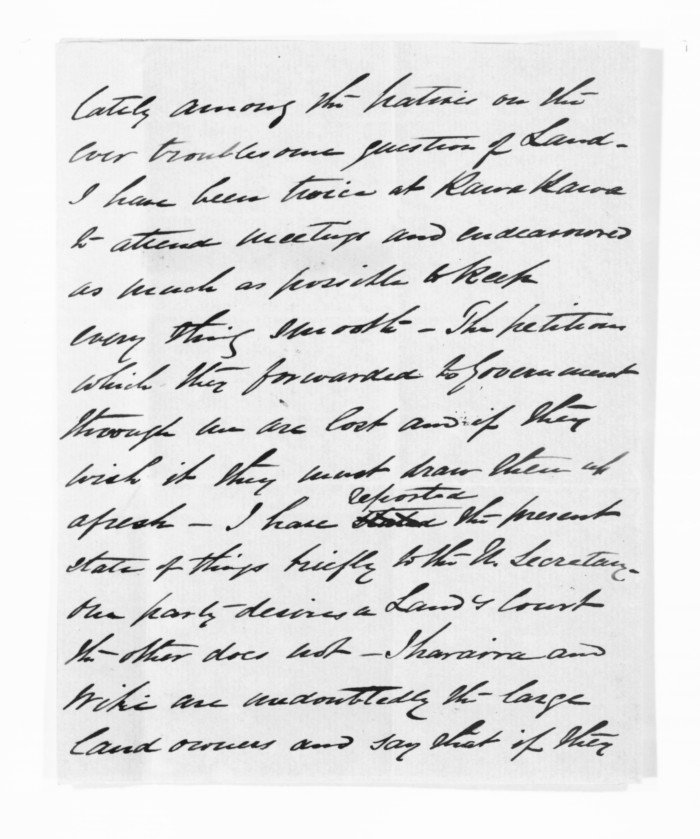 lately among the natives on the
ever troublesome question of Land -
I have been twice at Kawa Kawa
to attend meetings and endeavoured
as much as possible to keep
every thing smooth - The petitions
which they forwarded to Government
through me are lost and if they
wish it they must draw them up
afresh - I have reported the present
state of things briefly to the N. Secretary -
One party desires a Lands Court
the other does not - and
Wiki are undoubtedly the large
land owners and say that if they